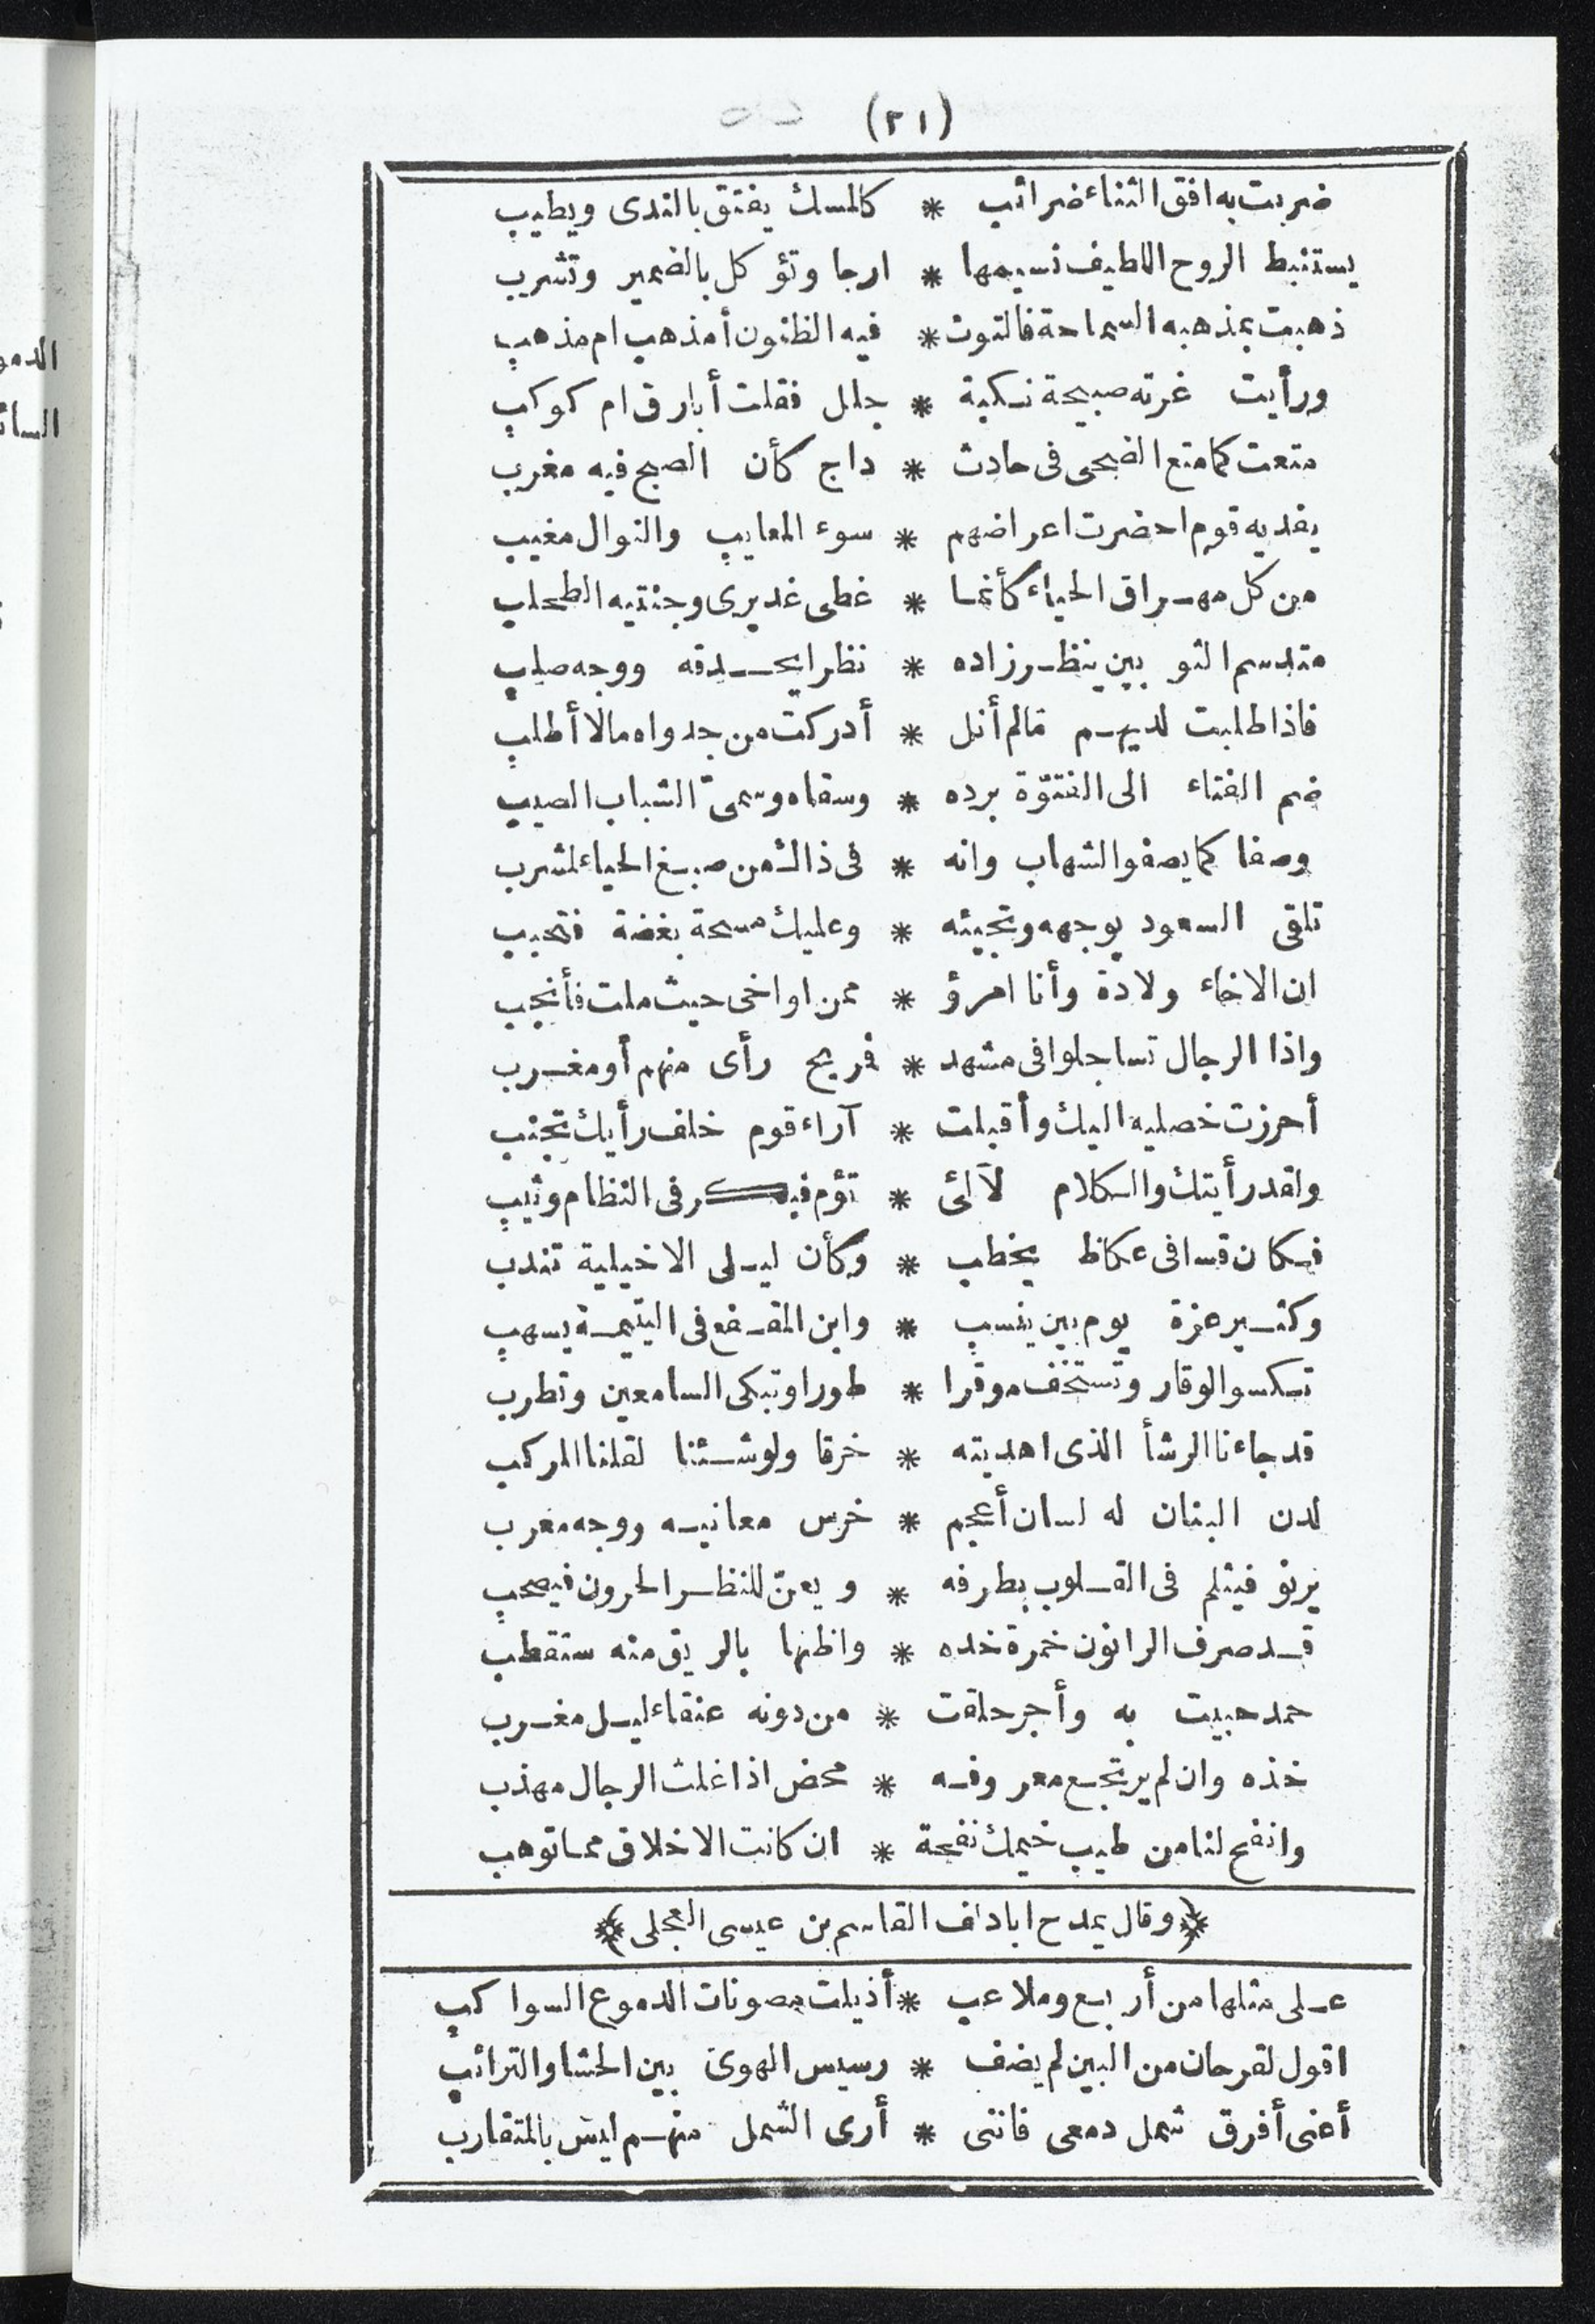 (٢١)
ضربت به افق الثناء ضرائب * كالمسك يفتق بالندى ويطيب
يستنبط الروح اللطيف نسيمها * ارجا وتؤكل بالضمير وتشرب
ذهبت بمذهبه السماحة فالتوت * فيه الظنون أمذهب ام مذهب
ورأيت غرته صبيحة نكبة * جلل فقلت أبارق ام كوكب
متعت كما متع الضحى فى حادث * داج كأن الصبح فيه مغرب
يفديه قوم احضرت اعراضهم * سوء المعايب والنوال مغيب
من كل مهراق الحياء كأنما * غطى غديرى وجنتيه الطحلب
متدسم الثوبين ينظر زاده * نظر ايحدقه ووجه صلب
فاذا طلبت لديهم مالم أنل * أدركت من جدواه مالا أطلب
ضم الفتاء الى الفتوّة برده * وسقاه وسمىّ الشباب الصيب
وصفا كما يصفو الشهاب وانه * فى ذاك من صبغ الحياء لمشرب
تلقى السعود بوجهه وتجيئه * وعليك مسحة بغضة فتحبب
ان الاخاء ولادة وأنا امرؤ * ممن اواخى حيث ملت فأنجب
واذا الرجال تساجلوا فى مشهد * فريح رأى منهم أو مغرب
أحرزت خصليه اليك وأقبلت * آراء قوم خلف رأيك تجنب
ولقد رأيتك والكلام لآلئ * تؤم فبكر فى النظام وثيب
فكان قسا فى عكاظ يخطب * وكأن ليلى الاخيلية تندب
وكثير عزة يوم بين ينسب * وابن المقفع فى اليتيمة يسهب
تكسو الوقار وتستخف موقرا * طورا وتبكى السامعين وتطرب
قد جاءنا الرشأ الذى اهديته * خرقا ولو شئنا لقلنا المركب
لدن البنان له لسان أعجم * خرس معانيه ووجه معرب
يرنو فيثلم فى القلوب بطرفه * ويعنّ للنظر الحرون فيصحب
قد صرف الرانون خمرة خده * واظنها بالريق منه ستقطب
حمد حبيت به وأجر حلقت * من دونه عنقاء ليل مغرب
خذه وان لم يرتجع معروفه * محض اذا غلث الرجال مهذب
وانفح لنا من طيب خيمك نفحة * ان كانت الاخلاق مما توهب
﴿وقال يمدح ابادلف القاسم بن عيسى العجلى﴾
على مثلها من أربع وملاعب * أذيلت مصونات الدموع السواكب
اقول لقرحان من البين لم يضف * رسيس الهوى بين الحشا والترائب
أعنى أفرق شمل دمعى فاننى * أرى الشمل منهم ليس بالمتقارب
الدمو
السا